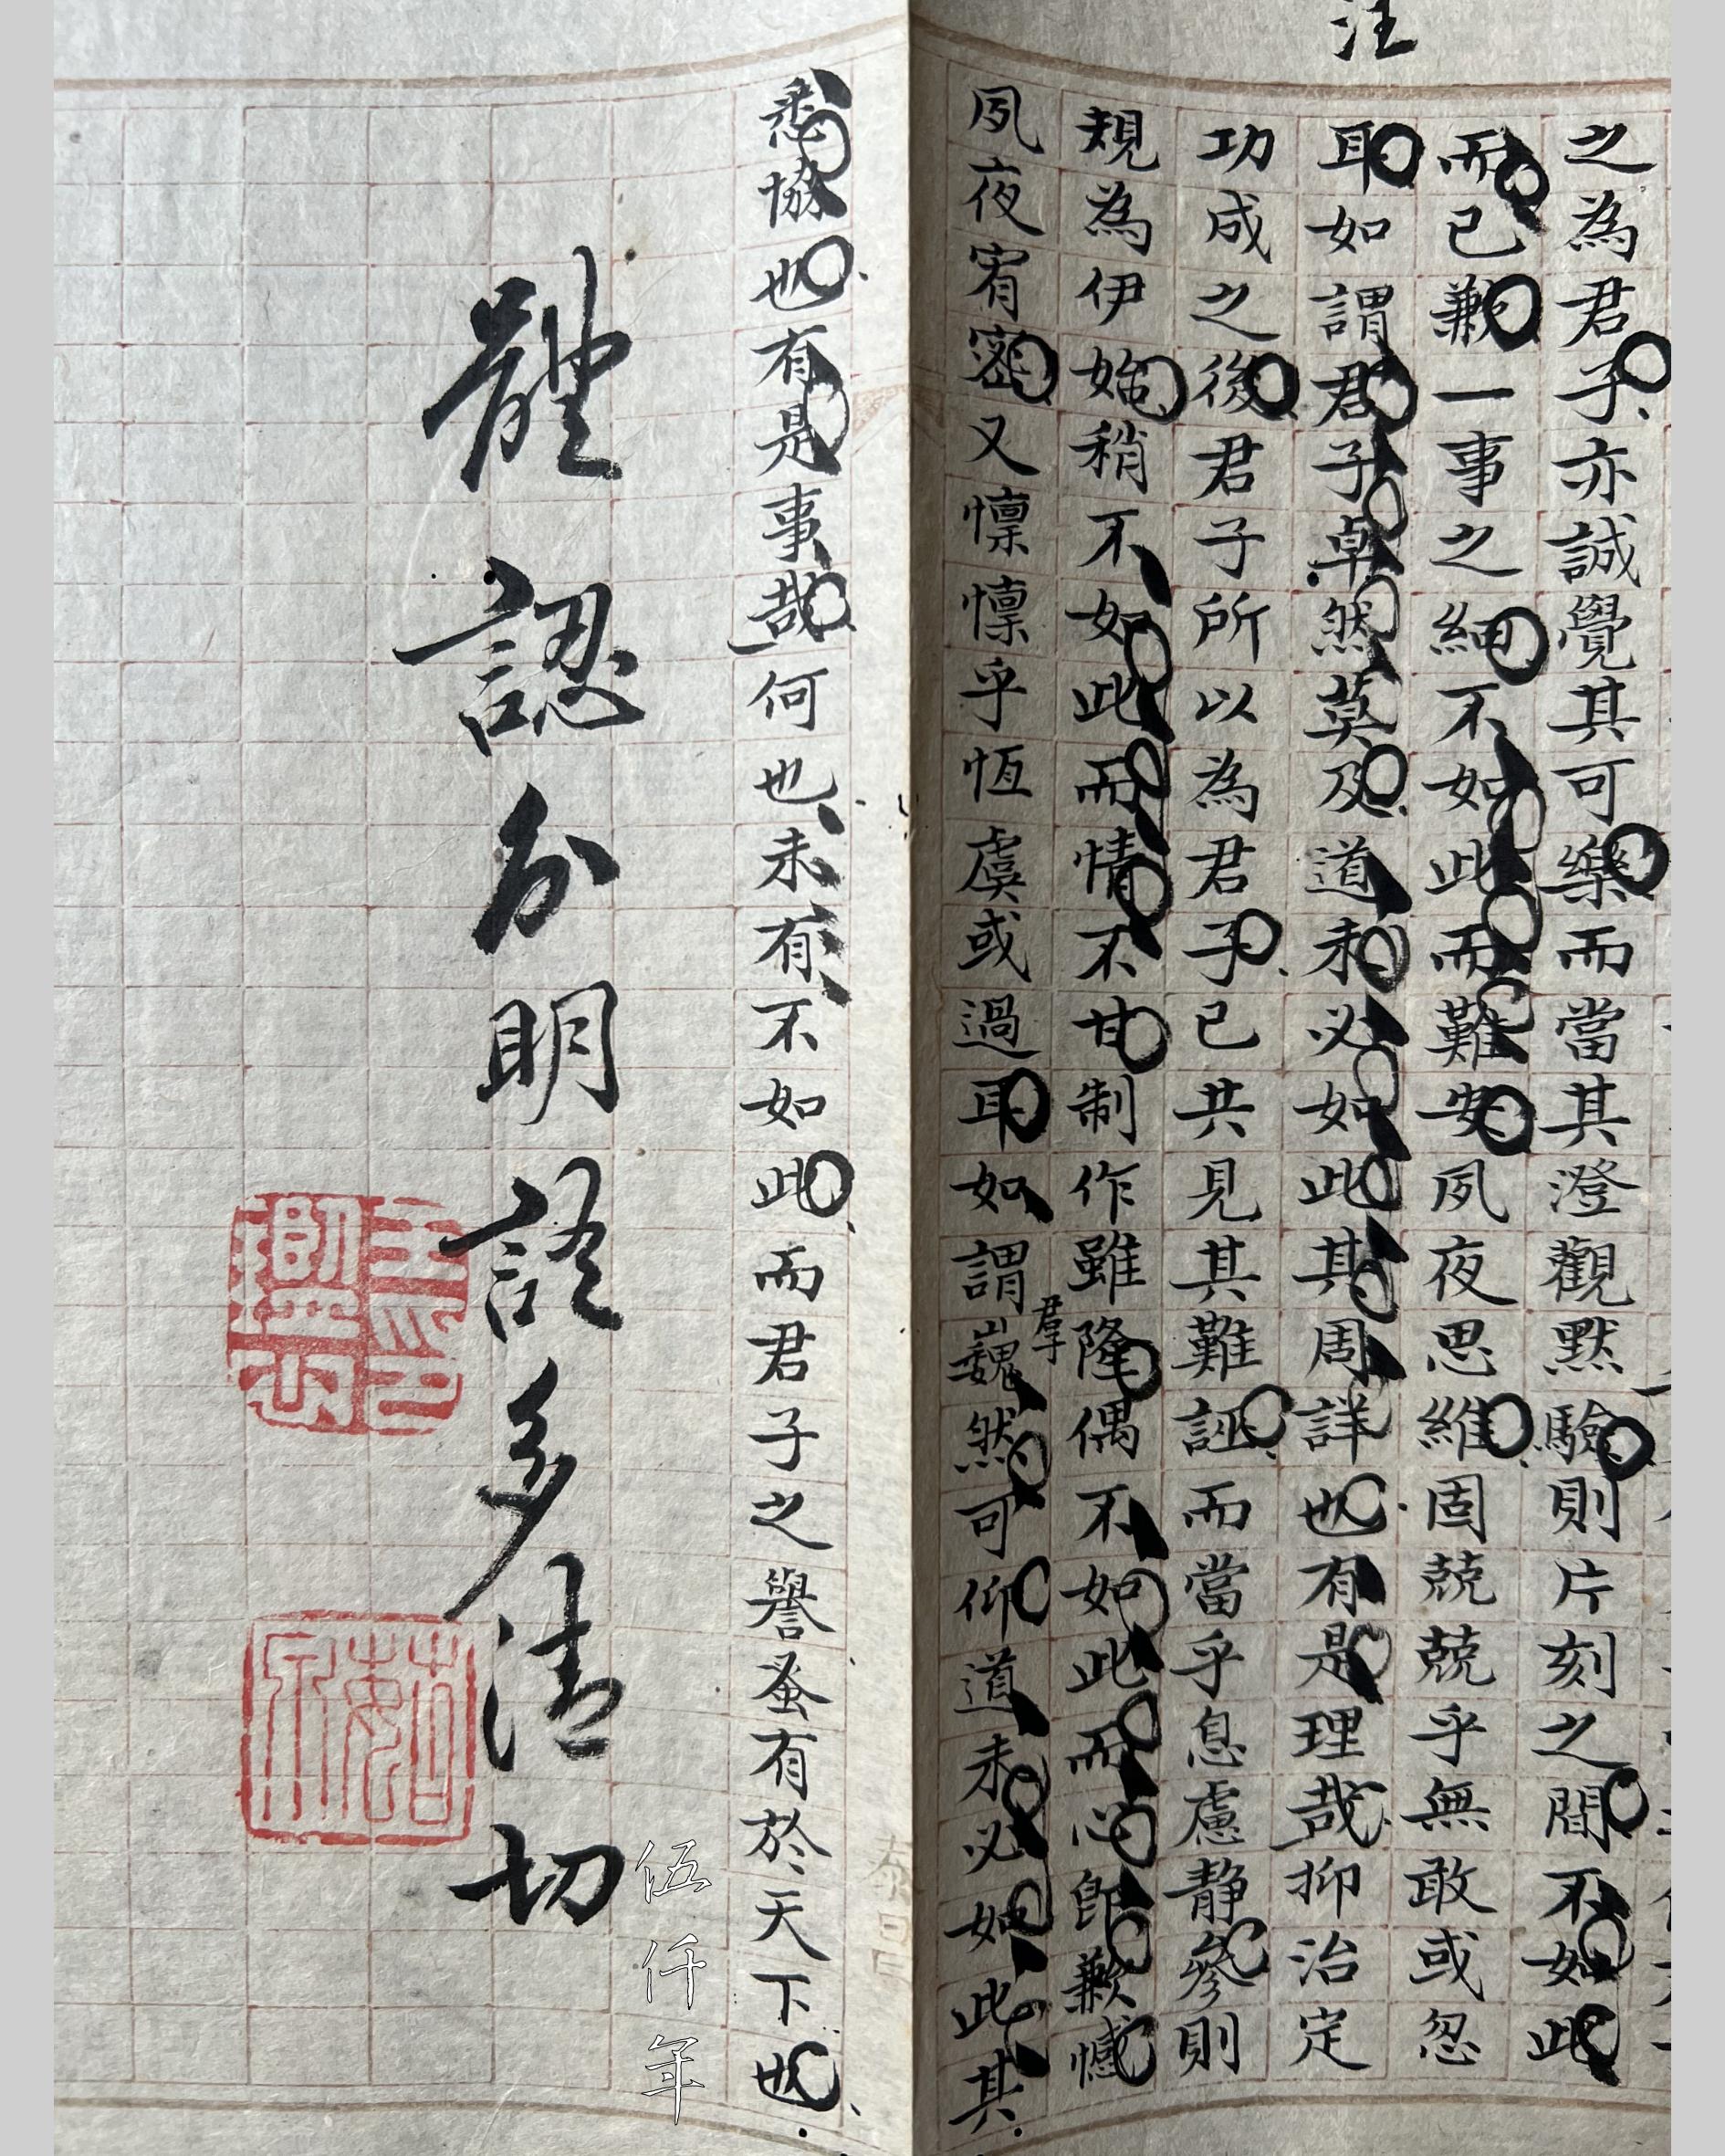 注
之為君子亦誠覺其可樂而當其澄觀默驗則片刻之間不如此
而已歉一事之細不如此而難安夙夜思維固兢兢乎無敢或忽
耳如謂君子卓然莫及道未必如此其周詳也有是理哉抑治定
功成之後君子所以為君子已共見其難誣而當乎息慮靜參則
規為伊始稍不如此而情不甘制作雖隆偶不如此而心即歉憾
夙夜宥密又懍懍乎恆虞或過耳如謂巍然可仰道未必如此其
羣
悉協也有是事哉何也未有不如此而君子之譽蚤有於天下也
體認分明語多清切
伍仟年